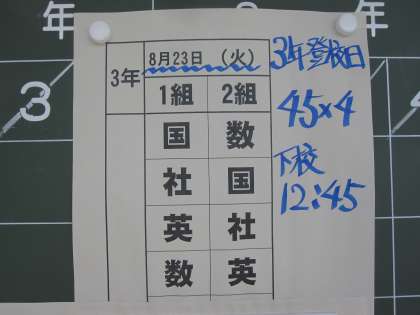 年
年
3
3年
8月23日 (火)
1組 2組
国 数
社 国
英 社
数 英
3年登校日
45×4
下校
12:45